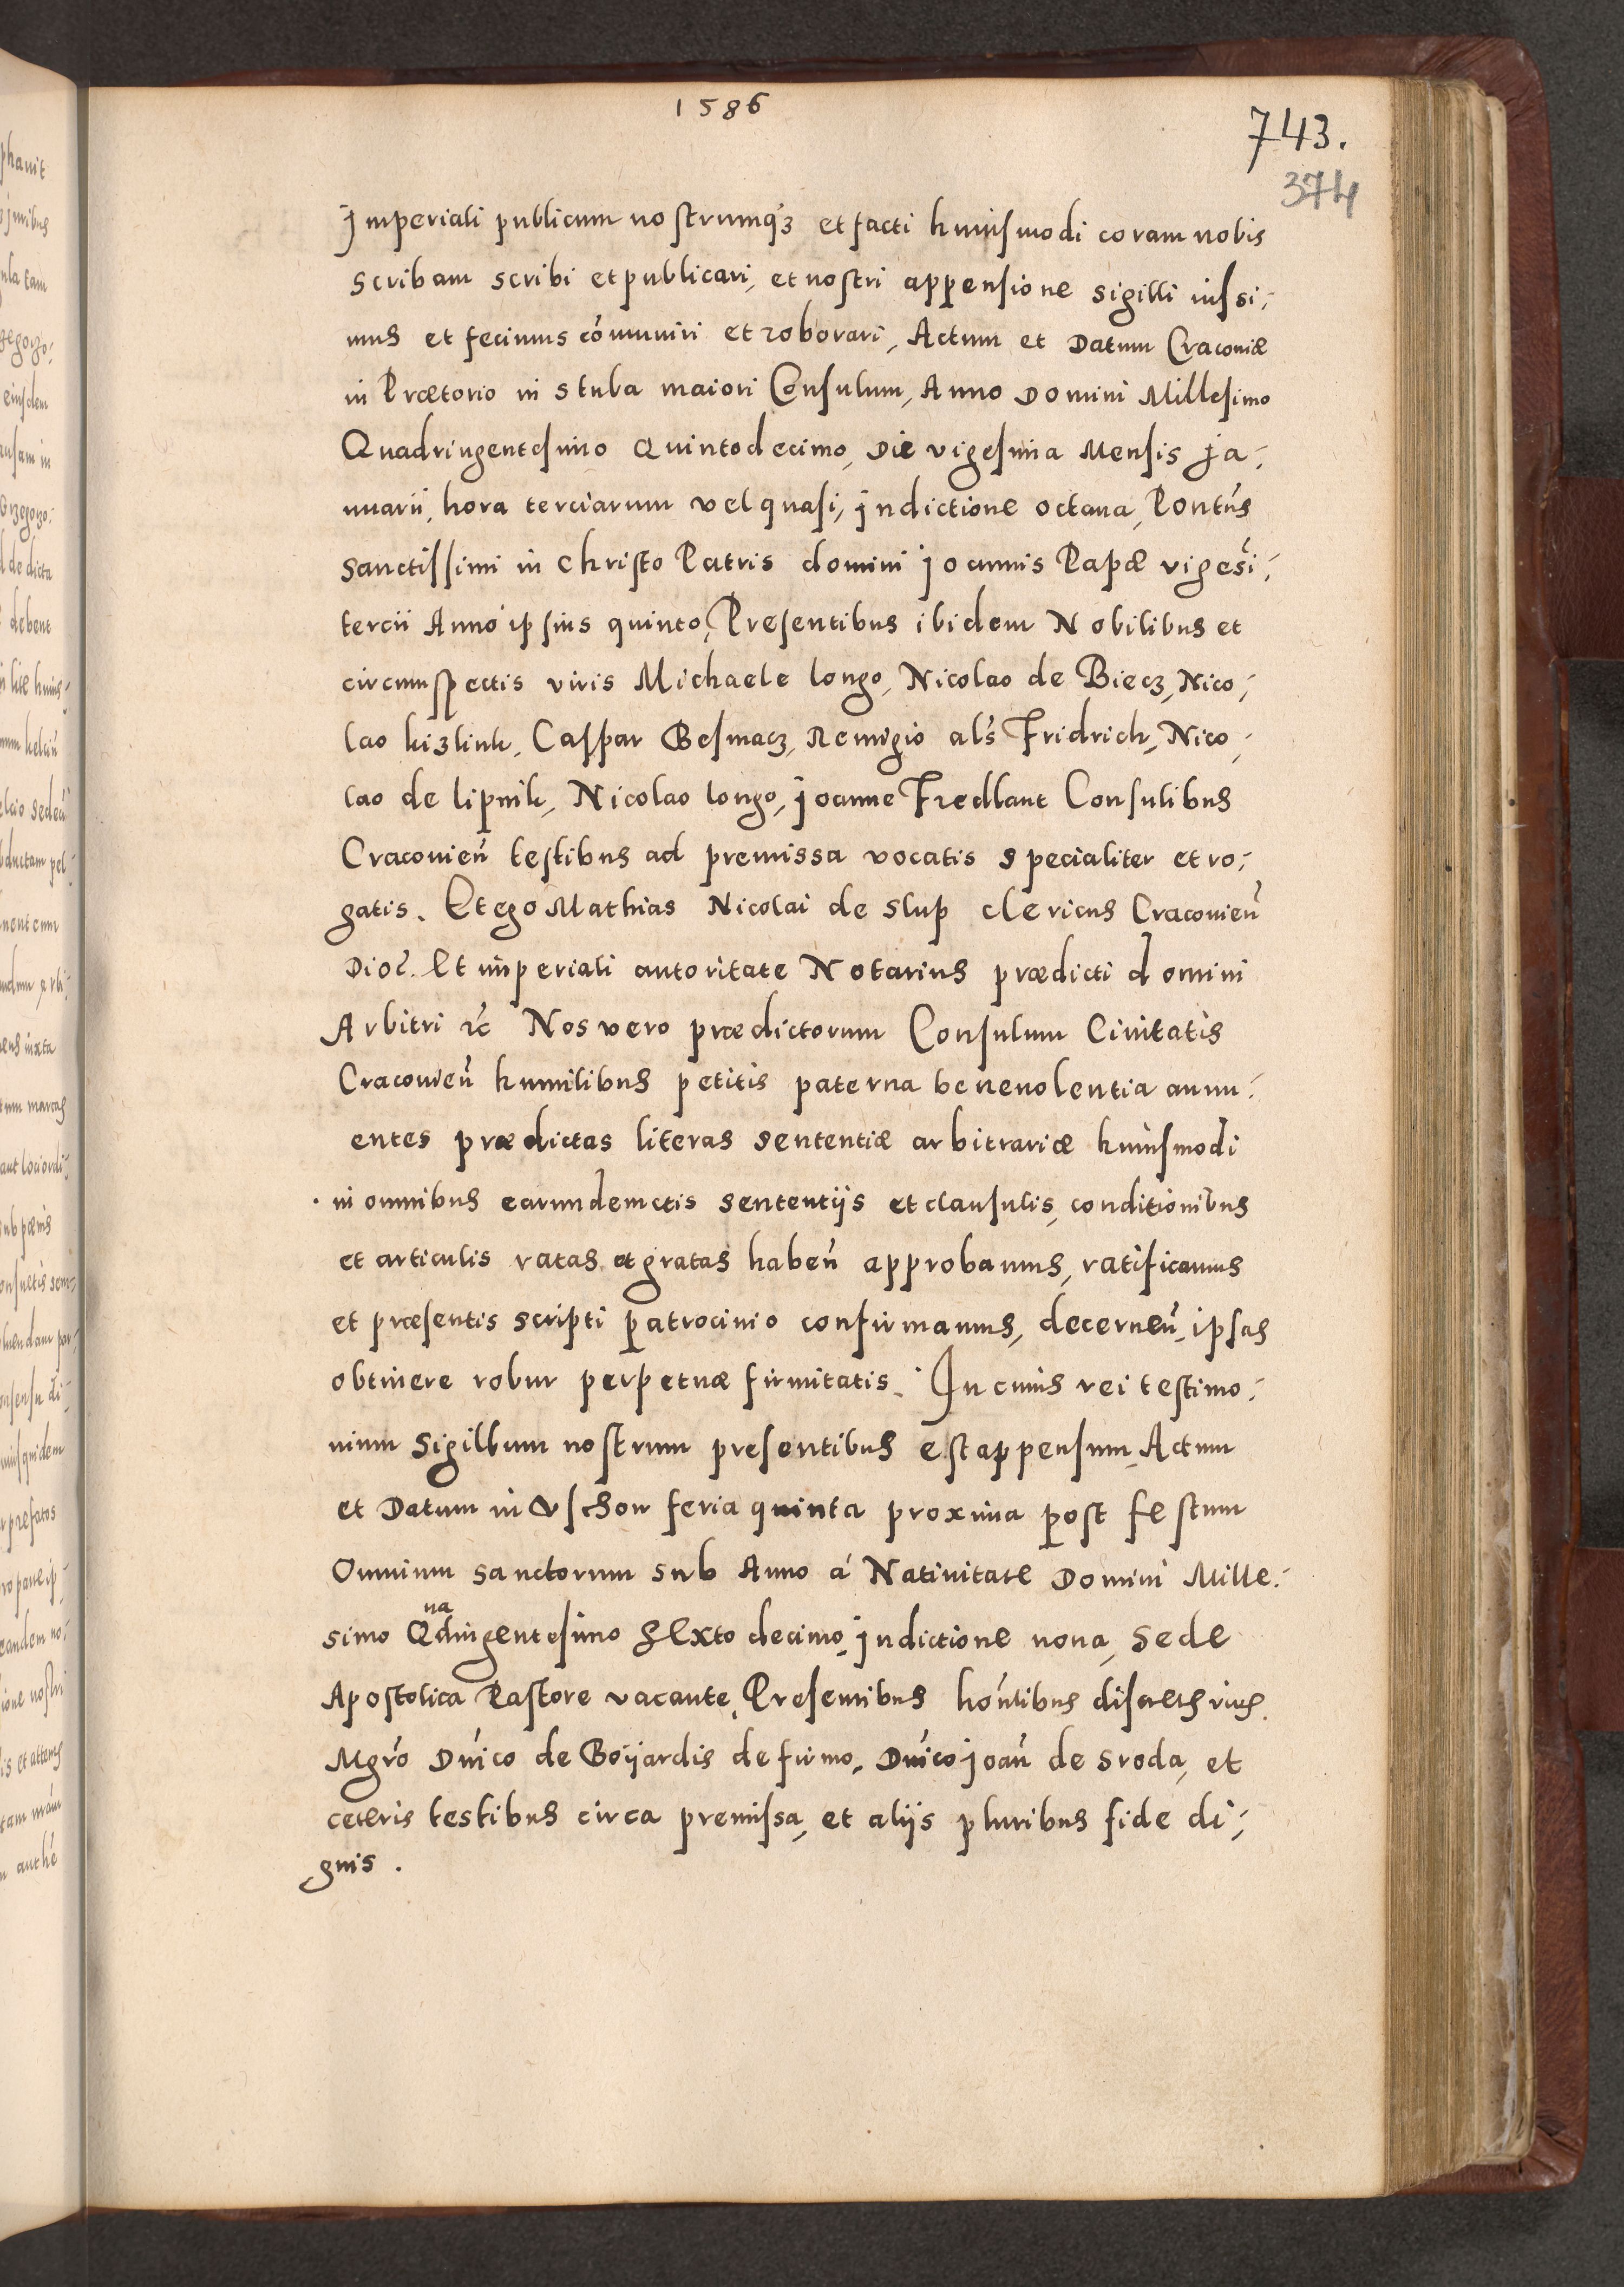 1586
743.
374
Imperiali publicum nostrumq3 et facti huiusmodi coram nobis
scribam scribi et publicari, et nostri appensione sigilli iussi-
mus et fecimus co͂muniri et roborari, Actum et Datum Cracouiæ
in Prætorio in stuba maiori Consulum, Anno Domini Millesimo
Quadringentesimo Quintodecimo, Die vigesima Mensis Ja-
nuarii, hora terciarum vel quasi, Indictione octaua, Pontu͂s
sanctissimi in Christo Patris domini Joannis Papæ vigesi͂-
tercii Anno ipsius quinto, Presentibus ibidem Nobilibus et
circumspectis viris Michaele longo, Nicolao de Biecz, Nico-
lao kizlink, Caspar Besmacz, Remigio al͂s Fridrich, Nico-
lao de lipnik, Nicolao longo, Joanne Fredlant Consulibus
Cracouien͂ testibus ad premissa vocatis specialiter et ro-
gatis. Et ego Mathias Nicolai de Slup clericus Cracouien͂
Dioc͂. Et imperiali autoritate Notarius prædicti domini
Arbitri ꝛc͂ Nos vero prædictorum Consulum Ciuitatis
Cracouien͂ humilibus petitis paterna beneuolentia annu-
entes prædictas literas sententiæ arbitrariæ huiusmodi
in omnibus earundemctis sententijs et clausulis, conditionibus
et articulis ratas et gratas haben͂ approbamus, ratificamus
et præsentis scripti patrocinio confirmamus, decernen͂, ipsas
obtinere robur perpetuæ firmitatis. In cuius rei testimo-
nium Sigillum nostrum presentibus est appensum, Actum
et Datum in Vschow feria quinta proxima post festum
Omnium sanctorum sub Anno á Natiuitate Domini Mille-
simo Quadingentesimo Sexto decimo, Indictione nona, Sede
Apostolica Pastore vacante, Presentibus hon͂libus discretis viris
Mgr͂o Dn͂ico de Boijardis de firmo, Dn͂ico Joan͂ de Sroda, et
ceteris testibus circa premissa, et alijs pluribus fide di-
gnis.